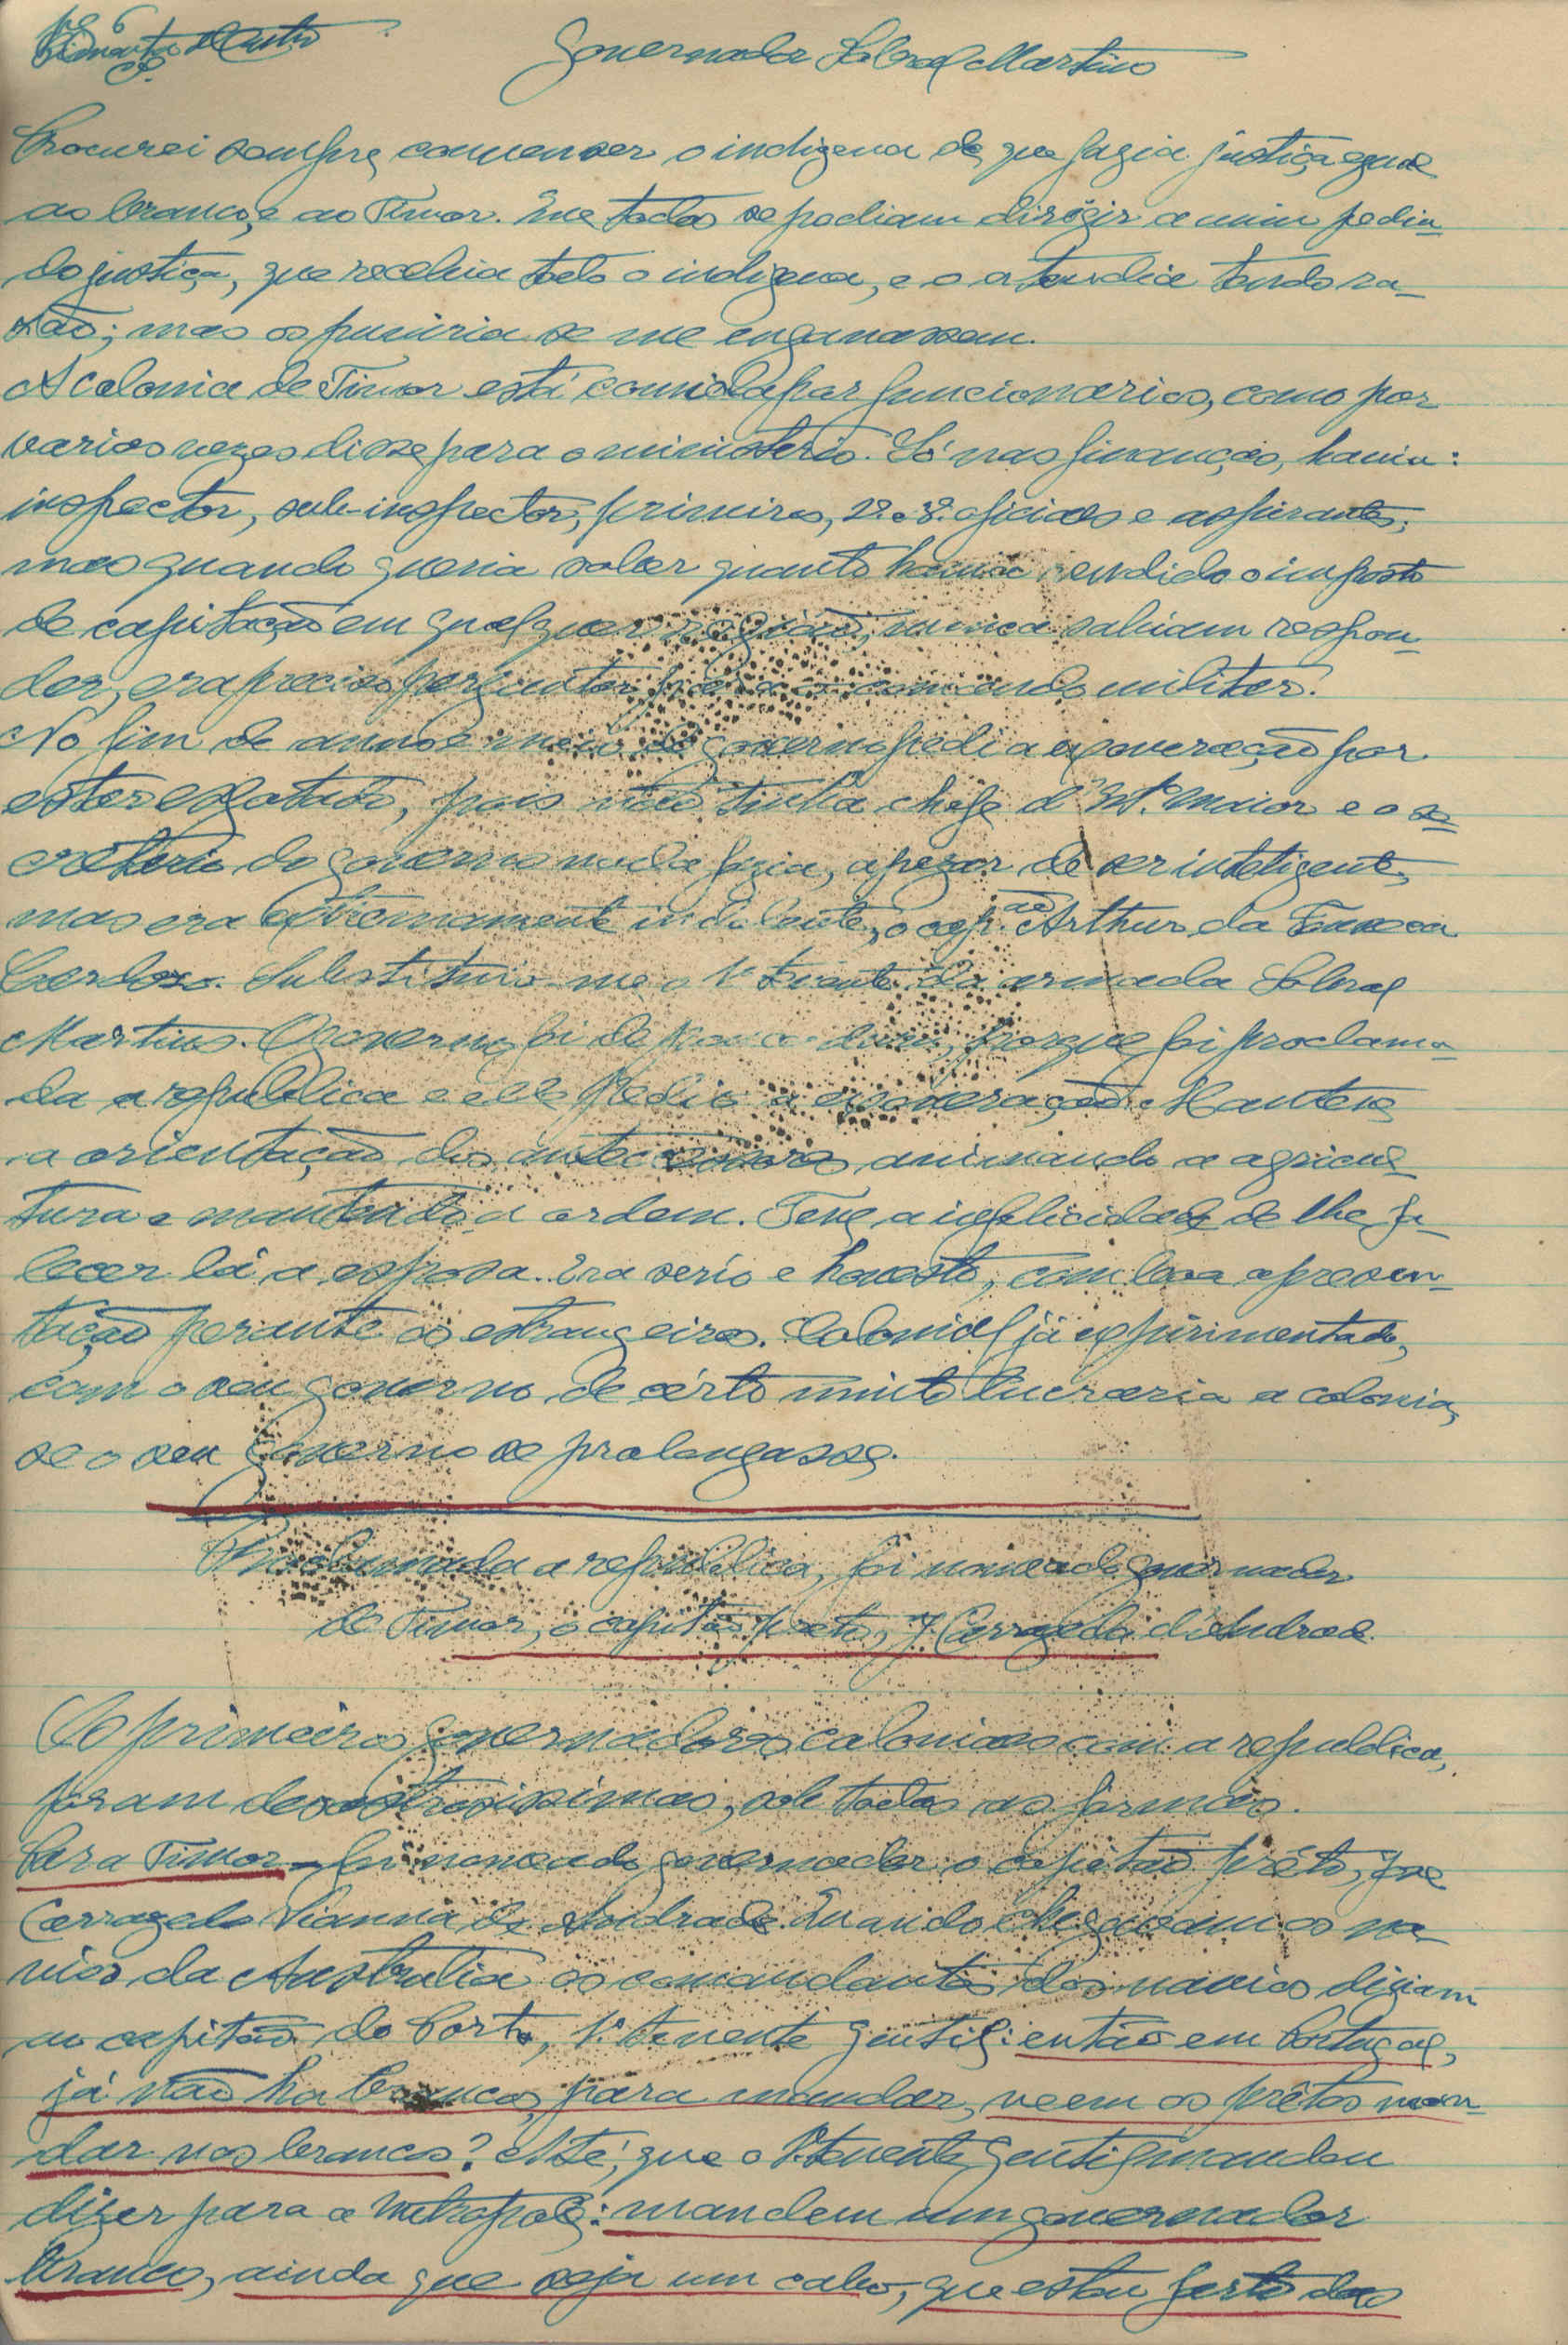 Governador Sobral Martins
Procurei sempre convencer o indigena de que fazia justiça egual
ao branco, e ao Timor. Que todos se podiam dirigir a mim pedin-
do justiça, que recebia todo o indigena, e o atendia tendo ra-
zão; mas os puniria se me enganassem.
A colonia de Timor está comida por funcionarios, como por
varias vezes disse para o ministerio. Só nas finanças, havia:
inspector, sub-inspector, primeiros, 2os e 3os oficiaes e aspirantes;
mas quando queria saber quanto havia rendido o imposto
de capitação em qualquer região, nunca sabiam respon-
der, era preciso perguntar para o comando militar.
No fim de anno e meio de governo pedi a exoneração por
estar esgotado, pois não tinha chefe d'Est.º Maior e o se-
cretario do governo nada fazia, apezar de ser inteligente,
mas era extremamente indolente, o cap.ão Arthur da Fonseca
Cardoso. Substituio-me o 1º tenente da armada Sobral
Martins. O governo foi de pouca dura, porque foi proclama-
da a republica e elle pediu a exoneração. Manteve
a orientação dos antecessores animando a agricul-
tura e mantendo a ordem. Teve a infelicidade de lhe fa-
lecer lá a esposa. Era serio e honesto, com boa apresen-
tação perante os estrangeiros. Colonial já expirimentado,
com o seu governo de cérto muito lucraria a colonia,
se o seu governo se prolongasse.
Proclamada a republica, foi nomeado governador
de Timor, o capitão preto, J. Carrazeda d'Andrade.
Os primeiros governadores coloniaes com a republica,
foram desastrosissimos, sob todas as formas.
Para Timor - foi nomeado governador o capitão prêto, José
Carrazeda Vianna de Andrade. Quando chegavam os na-
vios da Australia os comandantes dos navios diziam
ao capitão do Porto, 1º tenente Gentil: então em Portugal,
já não ha brancos para mandar, veem os prêtos man-
dar nos brancos? Até, que o 1º tenente Gentil mandou
dizer para a Metropole: mandem um governador
branco, ainda que seja um cabo, que estou farto das